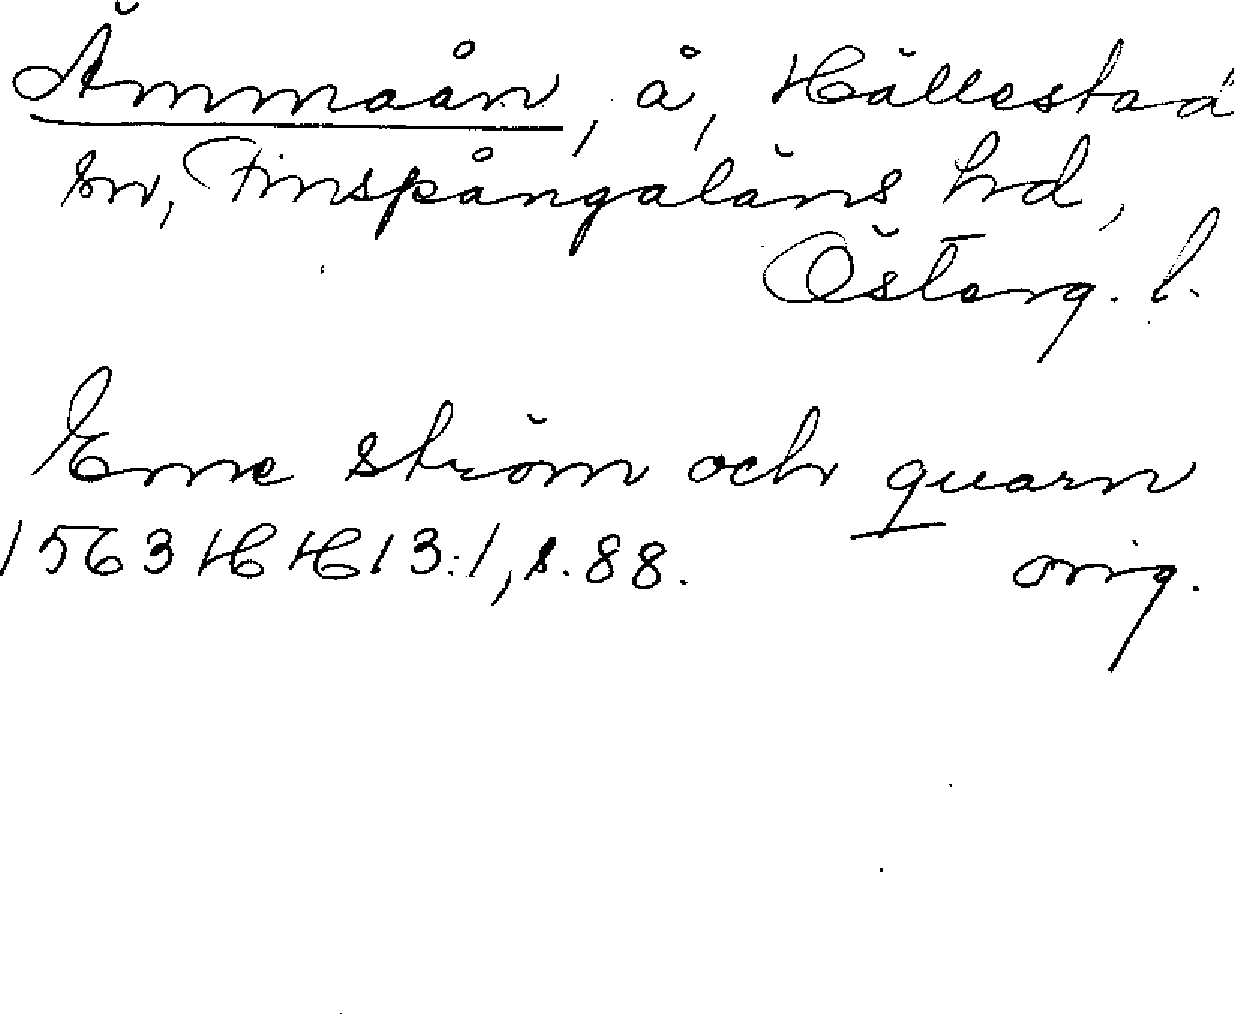 Ämmaån, å, Hällestad
sn, Finspångaläns hd,
Österg. l.
Eme ström och quarn
1563 HH13:1, s. 88. orig.